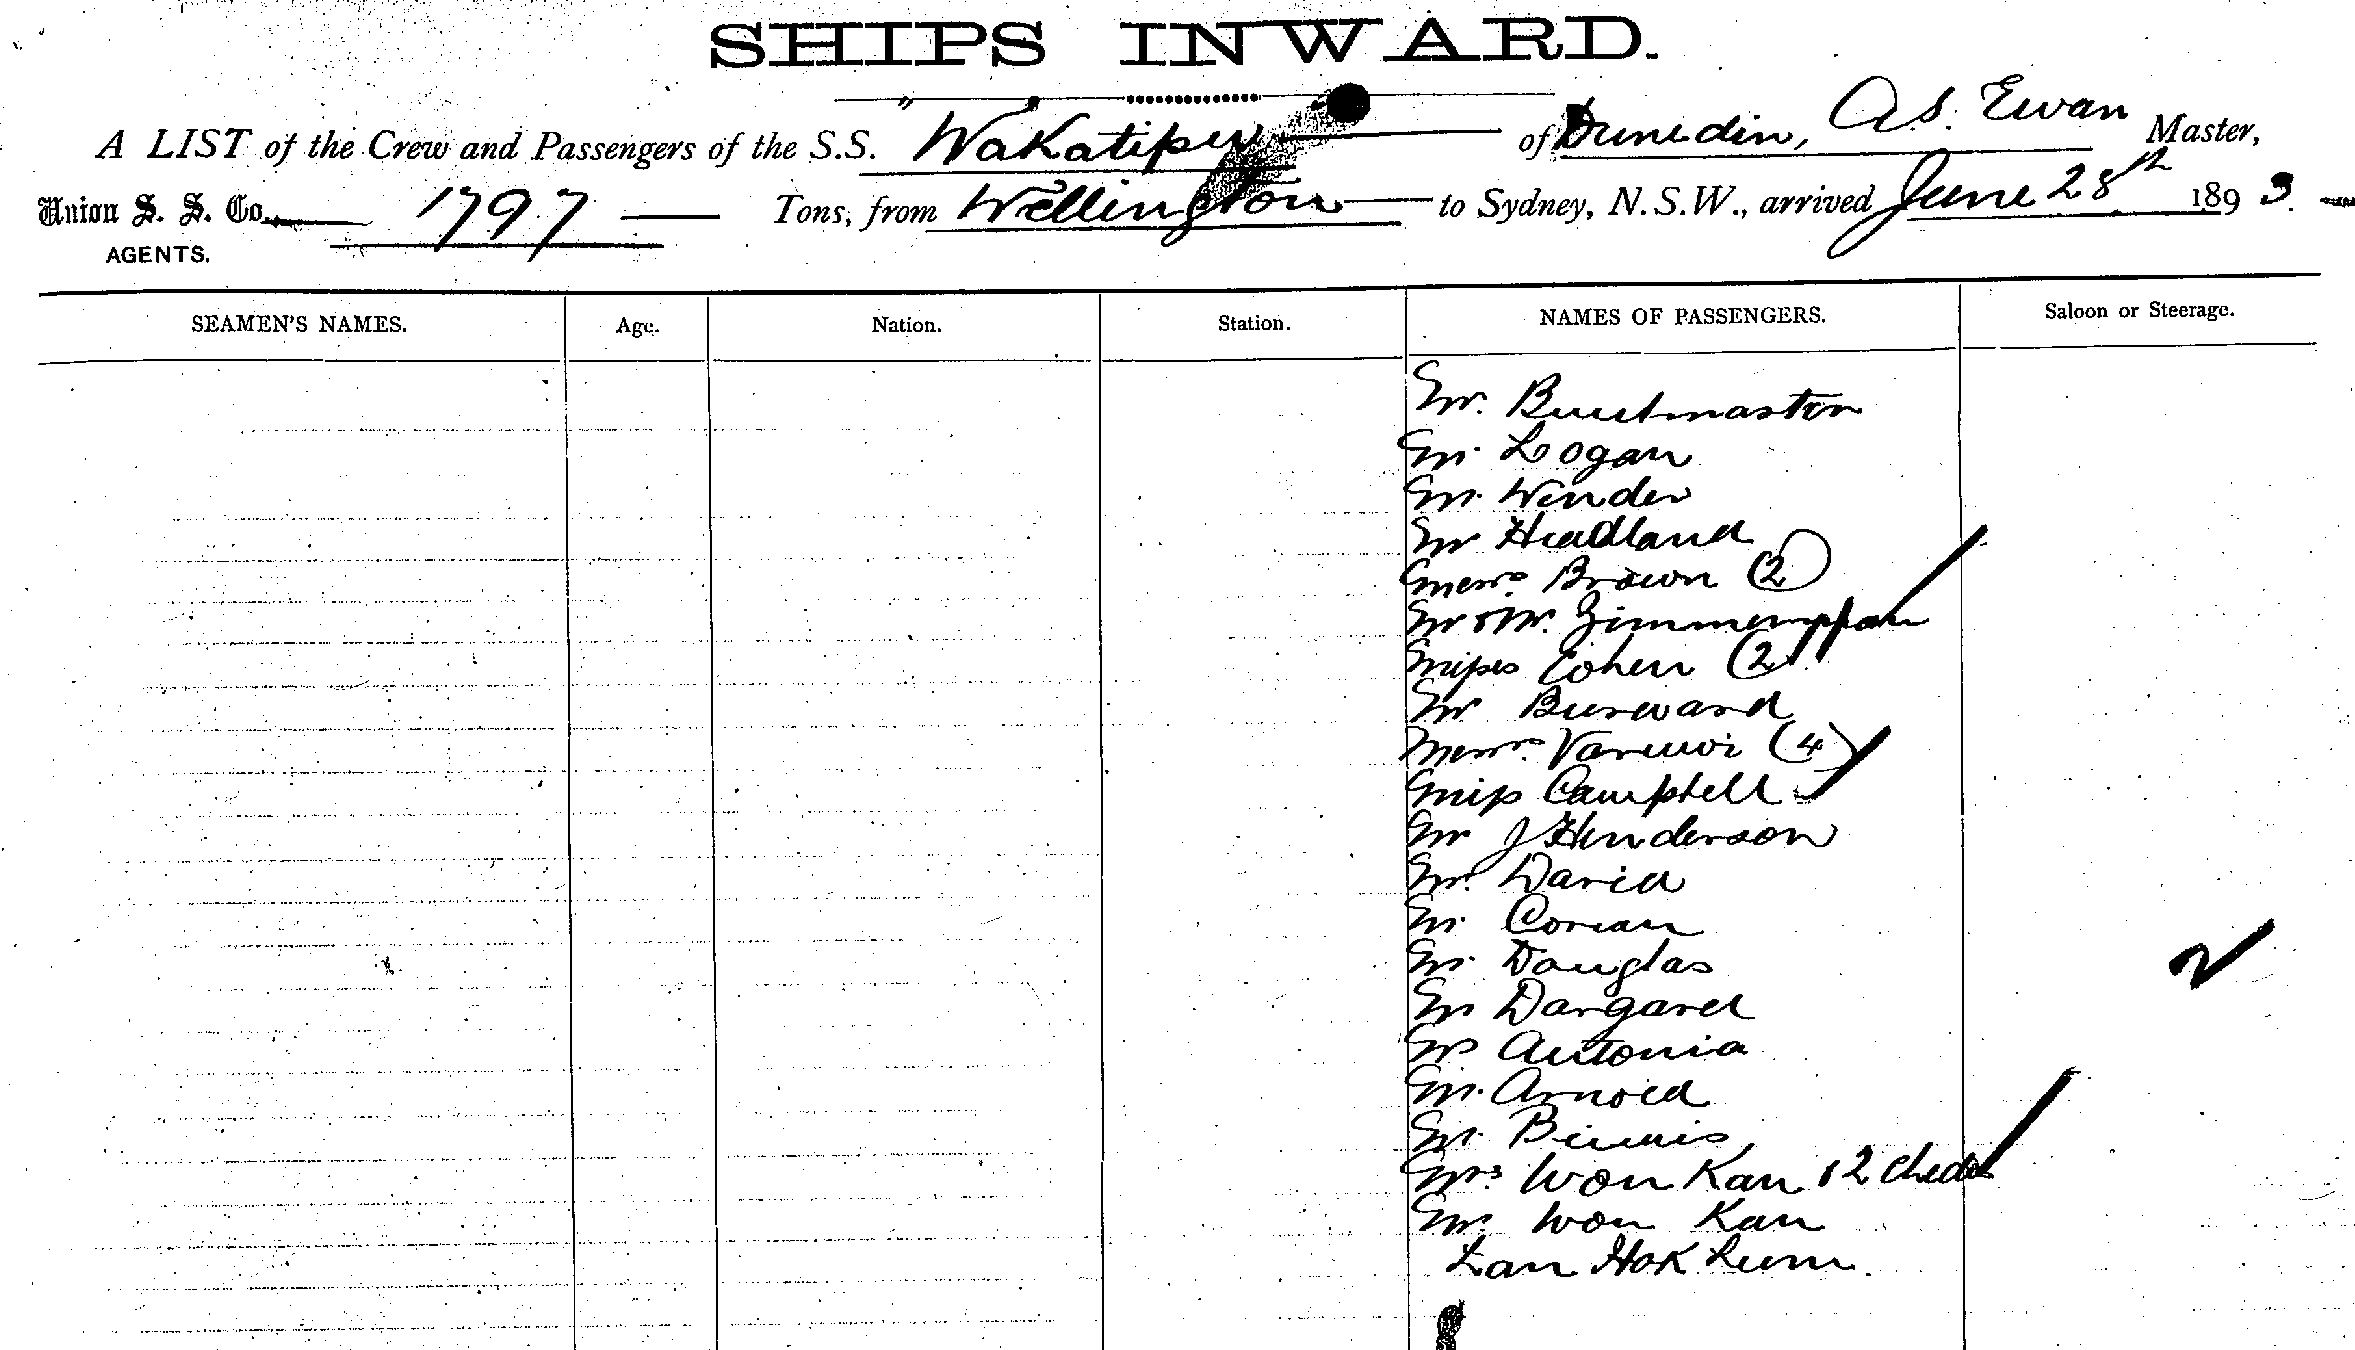 SHIPS INWARD.
A LIST of the Crew and Passengers of the S.S. Wakatipu of Dunedin, A.S. Ewan Master,
Union S. S. Co. 1797 Tons, from Wellington to Sydney, N.S.W., arrived June 28th 1893.
AGENTS.
SEAMEN'S NAMES. Age. Nation. Station. NAMES OF PASSENGERS. Saloon or Steerage.
Mr.
Mr. Logan
Mr. Winder
Mr Headland
Messrs Brown (2)
Mr & Mr. Zimmerman
Misses Cohen (2)
Mr Burward
Messrs (4)
Miss Campbell
Mr J Henderson
Mr. David
Mr
Mr. Douglas
Mr Dargavel
Mr Antonia
Mr. Arnold
Mr. Binnis
Mrs Won Kan & 2
Mr. Won Kan
Lan Hok Lum.